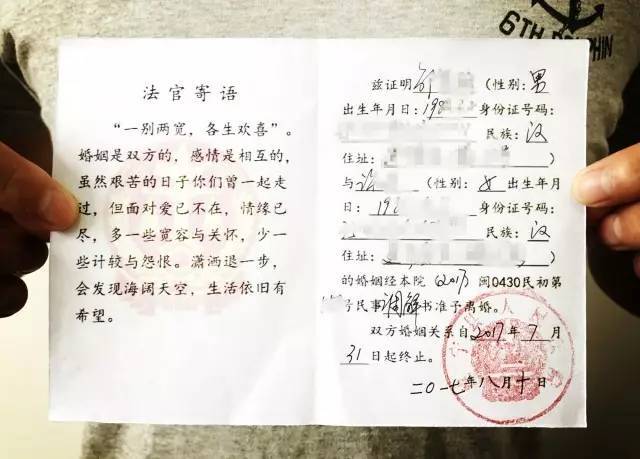 6TH DOLPHIN
法官寄语
“一别两宽，各生欢喜”。
婚姻是双方的，感情是相互的，
虽然艰苦的日子你们曾一起走
过，但面对爱已不在，情缘已
尽，多一些宽容与关怀，少一
些计较与怨恨。潇洒退一步，
会发现海阔天空，生活依旧有
希望。
兹证明 （性别：男
出生年月日：198 身份证号码：
民族：汉
住址： ）
与 （性别：女 出生年月
日：198 身份证号码：
民族：汉
住址： ）
的婚姻经本院（2017）闽0430民初第
号民事调解书准予离婚。
双方婚姻关系自2017年7月
31日起终止。
二〇一七年八月十日